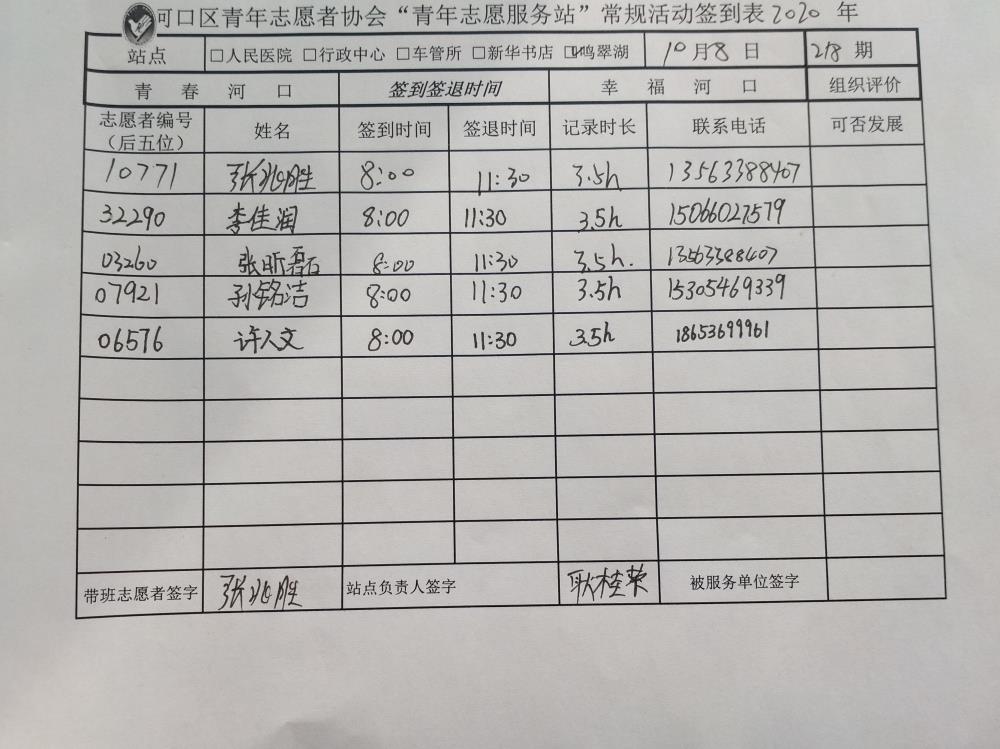 河口区青年志愿者协会“青年志愿服务站”常规活动签到表2020 年
站点 □人民医院 □行政中心 □车管所 □新华书店 ☑鸣翠湖 10月8日 218 期
青春河口 签到签退时间 幸福河口 组织评价
志愿者编号（后五位） 姓名 签到时间 签退时间 记录时长 联系电话 可否发展
10771 张兆胜 8:00 11:30 3.5h 13563388407
32290 李佳润 8:00 11:30 3.5h 15066027579
03260 张昕磊 8:00 11:30 3.5h. 13563388407
07921 孙铭洁 8:00 11:30 3.5h 15305469339
06576 许人文 8:00 11:30 3.5h 18653699961
带班志愿者签字 张兆胜 站点负责人签字 耿桂荣 被服务单位签字